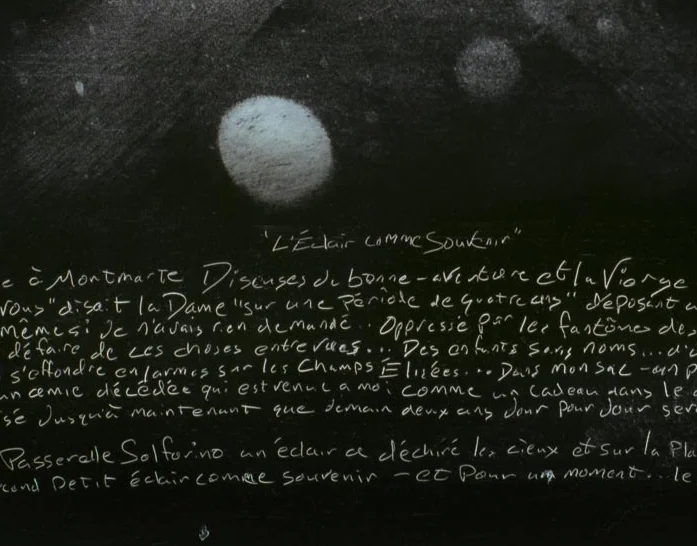 "L'Éclair comme Souvenir"
e à Montmarte Diseuses de bonne-aventure et la Vierge
vous" disait la Dame "sur une période de quatre ans" déposant
même si je n'avais rien demandé.. Oppressée par les fantômes de
défaire de ces choses entrevues... Des enfants sans noms... d'
s'effondre en larmes sur les Champs Élisées... Dans mon sac - un p
un amie décédée qui est venue a moi comme un cadeau dans le
sé Jusqu'à maintenant que demain deux ans Jour pour Jour ser
Passerelle Solforino un éclair a déchiré les cieux et sur la Pla
cond Petit éclair comme souvenir - et Pour un moment... le